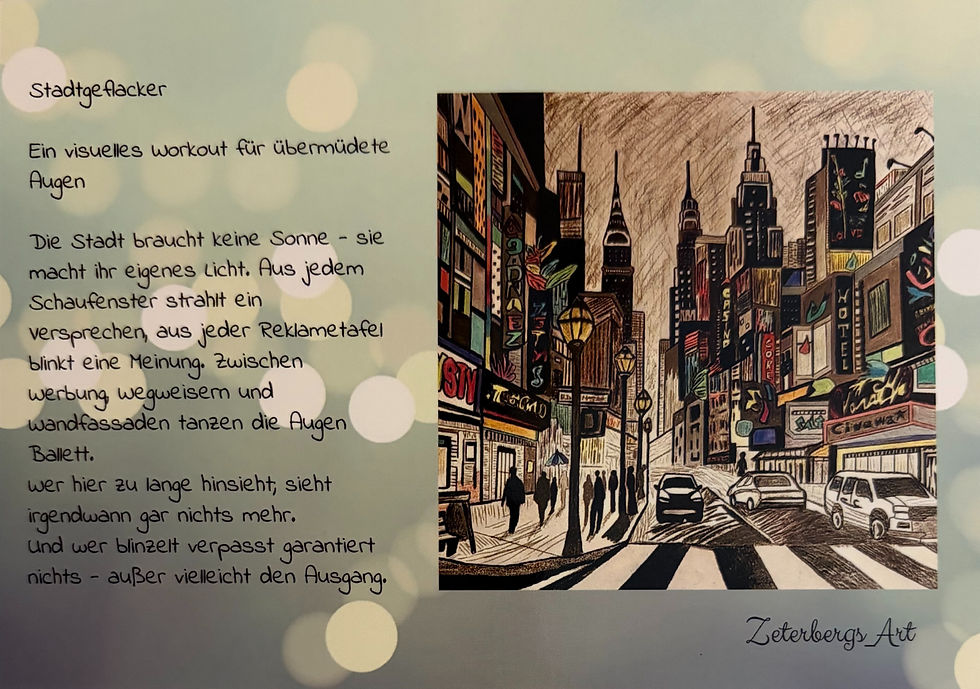 Stadtgeflacker
Ein visuelles Workout für übermüdete
Augen
Die Stadt braucht keine Sonne - sie
macht ihr eigenes Licht. Aus jedem
Schaufenster strahlt ein
Versprechen, aus jeder Reklametafel
blinkt eine Meinung. Zwischen
Werbung, Wegweisern und
Wandfassaden tanzen die Augen
Ballett.
Wer hier zu lange hinsieht, sieht
irgendwann gar nichts mehr.
Und wer blinzelt verpasst garantiert
nichts - außer vielleicht den Ausgang.
HOTEL
STY
Cinema
Zeterbergs_Art